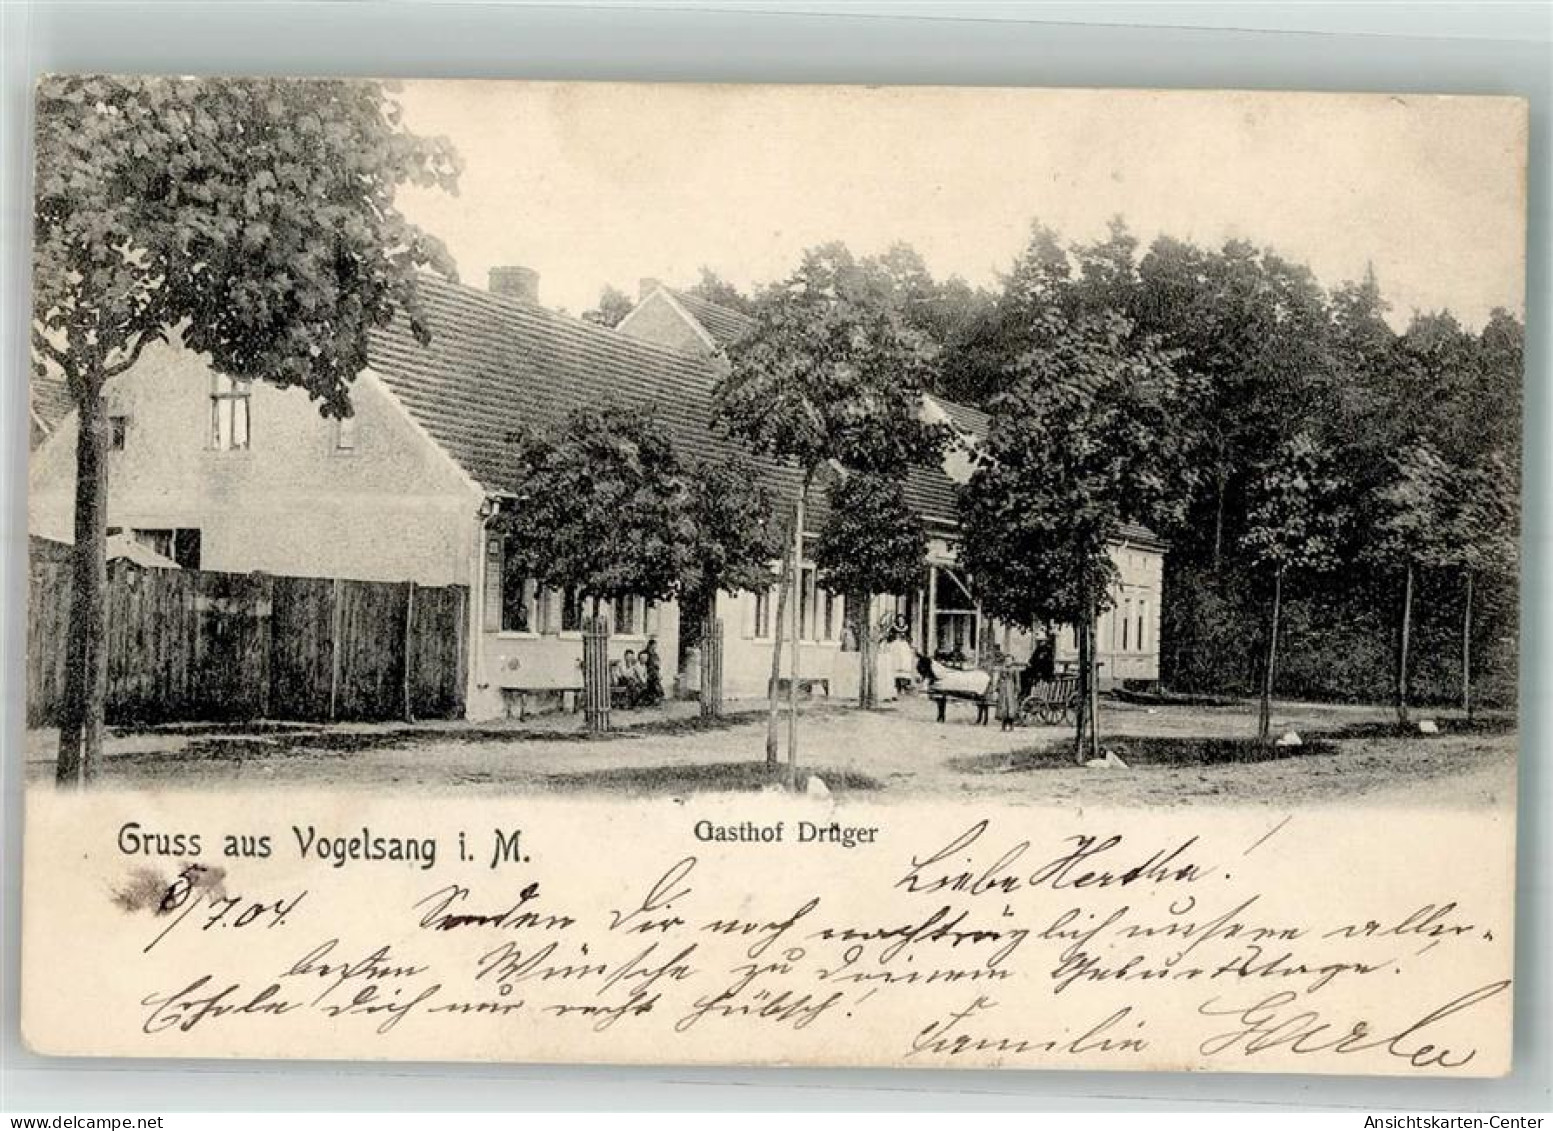 Gruss aus Vogelsang i. M.
Gasthof Drüger
5/7.04.
Liebe Hertha!
Senden Dir noch nachträglich unsere aller-
besten Wünsche zu Deinem Geburtstage.
Erhole Dich nur recht hübsch!
Familie
Ansichtskarten-Center